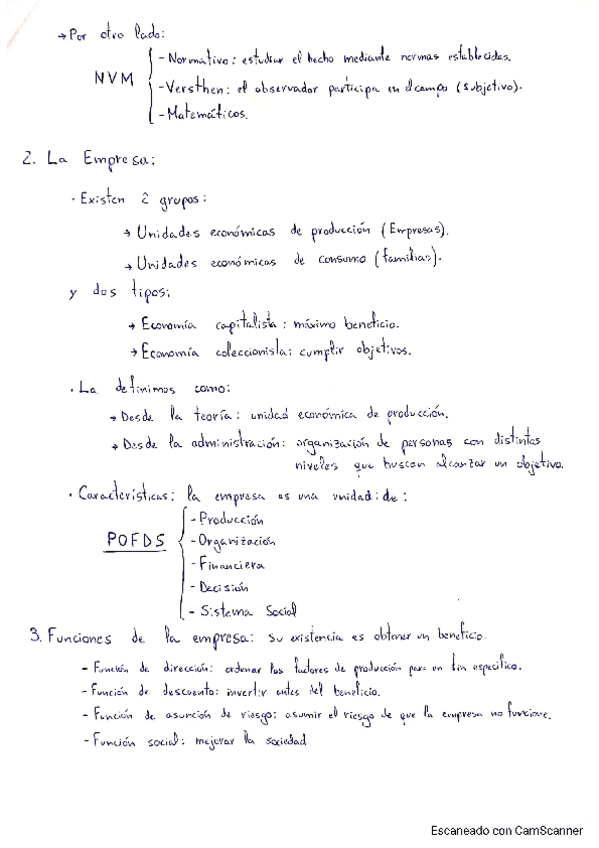 → Por otro lado:
NVM
- Normativo: estudiar el hecho mediante normas establecidas.
- Versthen: el observador participa en el campo (subjetivo).
- Matemáticos.
2. La Empresa:
· Existen 2 grupos:
→ Unidades económicas de producción (Empresas).
→ Unidades económicas de consumo (familias).
y dos tipos:
→ Economía capitalista: máximo beneficio.
→ Economía coleccionista: cumplir objetivos.
· La definimos como:
→ Desde la teoría: unidad económica de producción.
→ Desde la administración: organización de personas con distintos
niveles que buscan alcanzar un objetivo.
· Características: la empresa es una unidad: de:
POFDS
- Producción
- Organización
- Financiera
- Decisión
- Sistema Social
3. Funciones de la empresa: su existencia es obtener un beneficio.
- Función de dirección: ordenar los factores de producción para un fin específico.
- Función de descuento: invertir antes del beneficio.
- Función de asunción de riesgo: asumir el riesgo de que la empresa no funcione.
- Función social: mejorar la sociedad
Escaneado con CamScanner